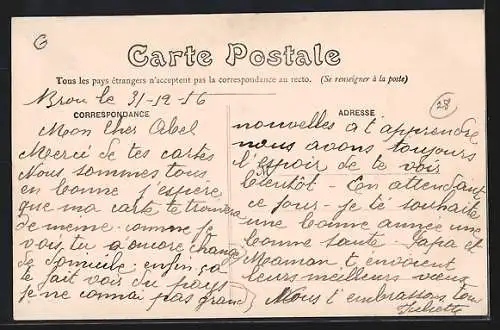 G
Carte Postale
Tous les pays étrangers n'acceptent pas la correspondance au recto. (Se renseigner à la poste)
Brou le 31-12-16
CORRESPONDANCE
Mon Cher Abel
Merci de tes cartes
Nous sommes tous
en bonne j'espère
que ma carte te trouvera
de meme - comme je
vois tu a encore changé
de domicile enfin ça
te fait voir du pays
je ne connai pas grand
ADRESSE
28
nouvelles a t'apprendre
nous avons toujours
l'espoir de te voir
bientôt - En attendant
ce jour - je te souhaite
une bonne année une
bonne santé - Papa et
Maman t'envoient
leurs meilleurs vœux
Nous t'embrassons tous
Juliette